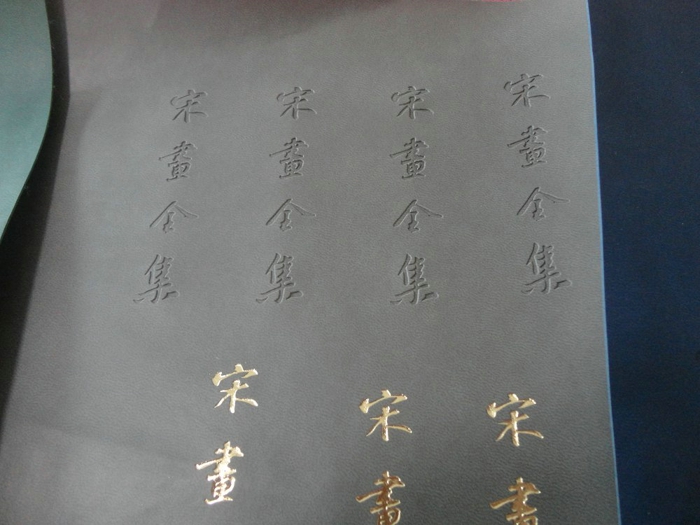 宋畫全集
宋畫全集
宋畫全集
宋畫全集
宋畫
宋畫
宋畫